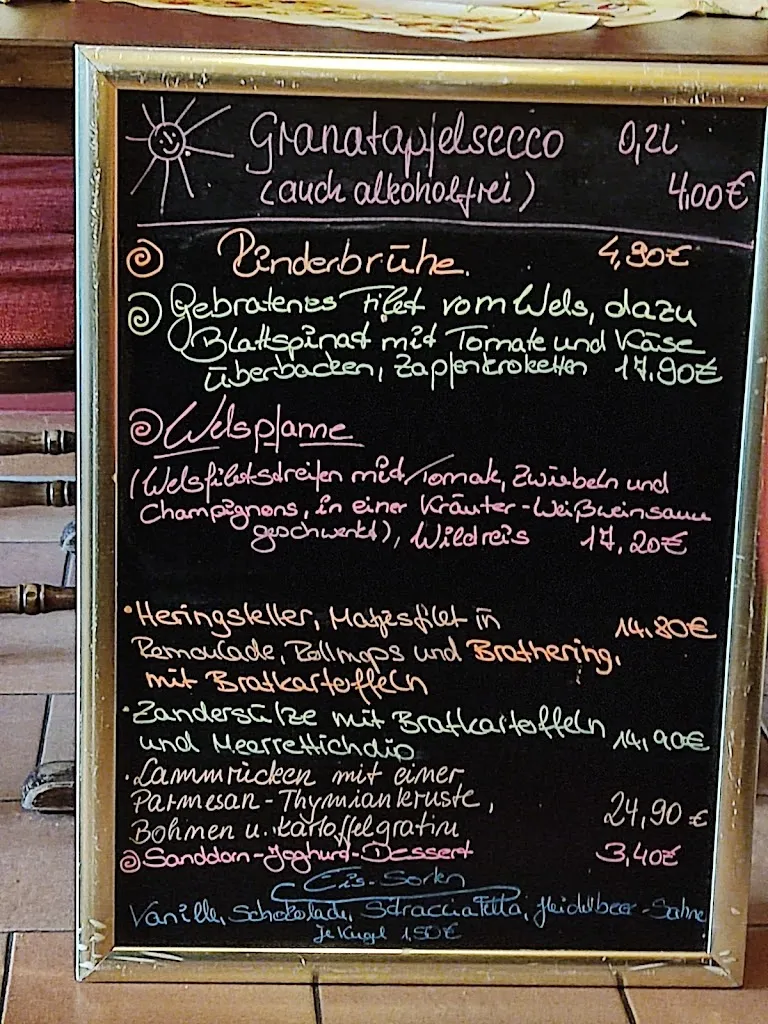 Granatapfelsecco 0,2l
(auch alkoholfrei) 4,00€
Rinderbrühe. 4,90€
Gebratenes Filet vom Wels, dazu
Blattspinat mit Tomate und Käse
überbacken, Zapfenkroketten 17,90€
Welspfanne
(Welsfiletstreifen mit Tomate, Zwiebeln und
Champignons, in einer Kräuter-Weißweinsauce
geschwenkt), Wildreis 17,20€
·Heringsteller, Matjesfilet in 14,80€
Remoulade, Rollmops und Brathering,
mit Bratkartoffeln
·Zandersülze mit Bratkartoffeln 14,90€
und Meerrettichdip
·Lammrücken mit einer
Parmesan-Thymiankruste, 24,90€
Bohnen u. Kartoffelgratin
Sanddorn-Joghurt-Dessert 3,40€
Eis-Sorten
Vanille, Schokolade, Stracciatella, Heidelbeer-Sahne
je Kugel 1,50€